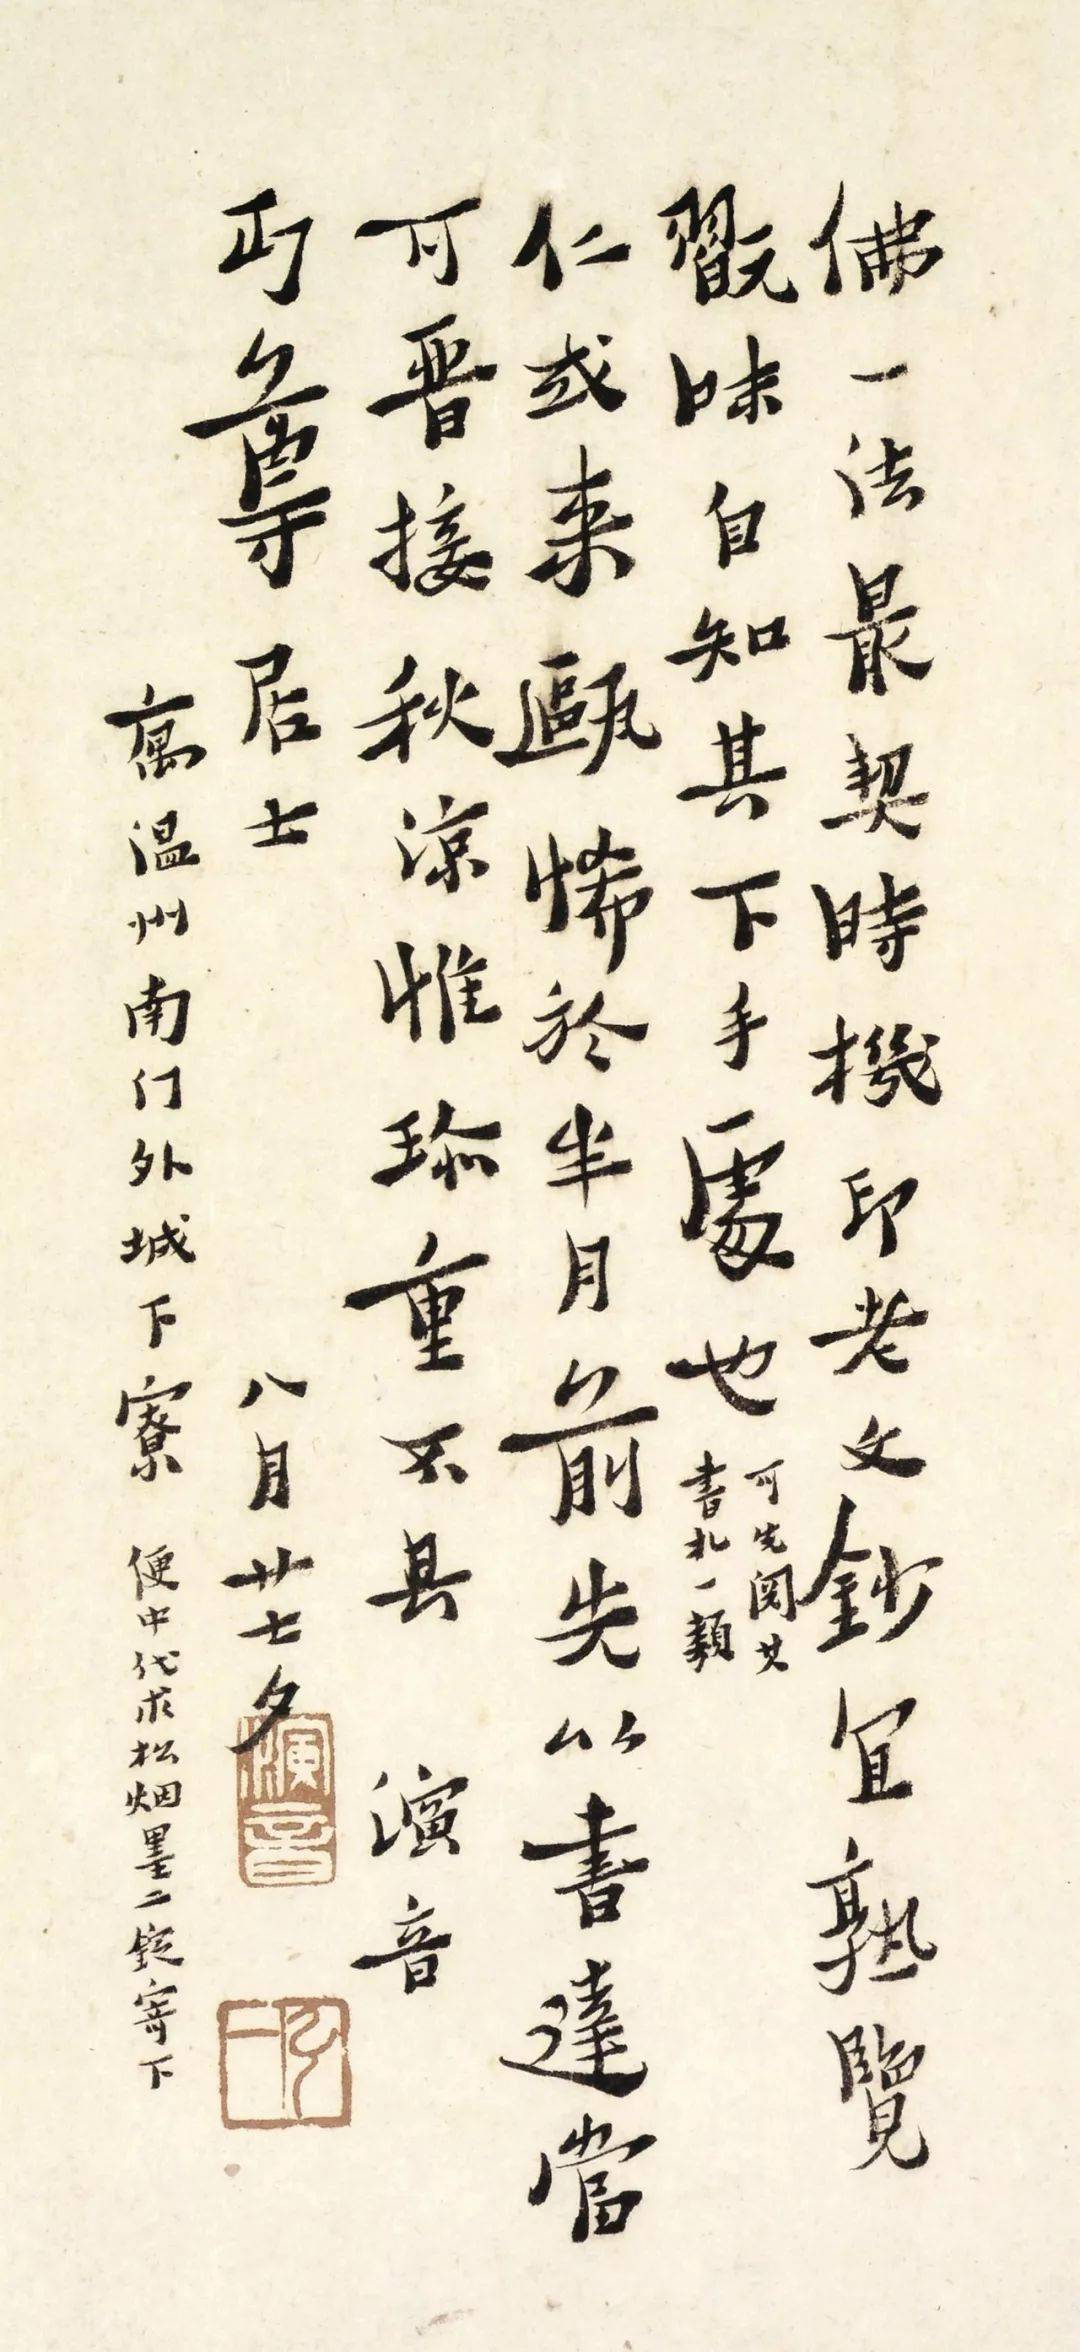 佛一法最契時機印老文鈔宜熟覽
翫味自知其下手處也
可先閱其
書札一類
仁或来甌悕於半月前先以書達當
可晋接秋涼惟珎重不具 演音
丏尊居士 八月廿七夕
寓温州南门外城下寮 便中代求松烟墨二錠寄下
演音
弘一